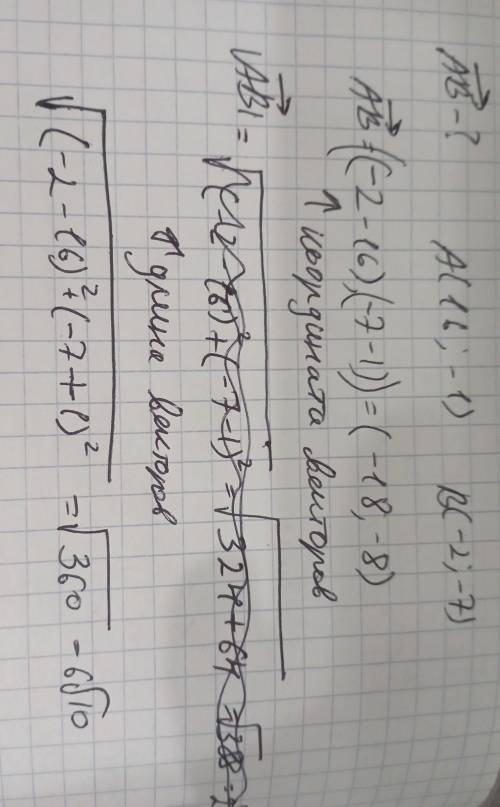 AB - ? A(16; -1) B(-2; -7)
AB = ((-2-16),(-7-1)) = (-18;-8)
↑ координата векторов
|AB| = √(-2-16)²+(-7-1)² = √324+64 = √38
↑ длина векторов
√(-2-16)²+(-7+1)² = √360 - 6√10